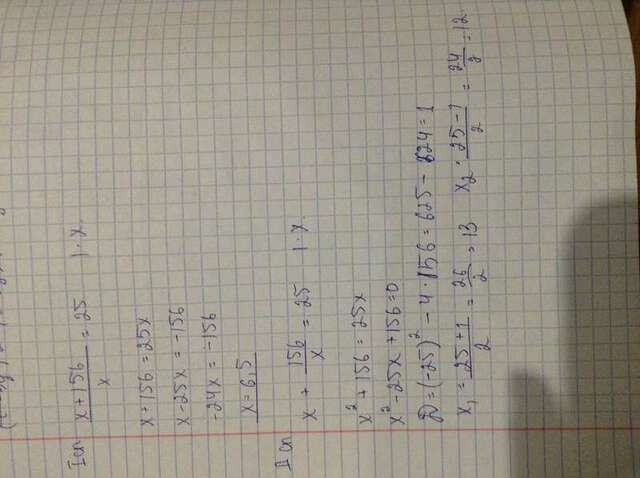 I сп x+156/x = 25 | · x
x+156 = 25x
x-25x = -156
-24x = -156
x = 6,5
II сп
x + 156/x = 25 | · x
x² + 156 = 25x
x² - 25x + 156 = 0
D = (-25)² - 4 · 156 = 625 - 624 = 1
x₁ = 25+1/2 = 26/2 = 13 x₂ · 25-1/2 = 24/2 = 12